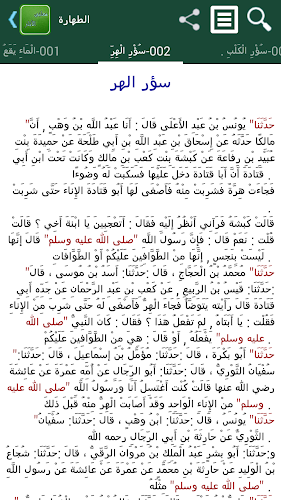 الطهارة
001-الْمَاءِ يَقَعُ
002-سُؤْرِ الْهِرِّ
سُؤْرِ الْكَلْبِ-003
سؤر الهر
حَدَّثَنَا" يُونُسُ بْنُ عَبْدِ الْأَعْلَى قَالَ : أَنَا عَبْدُ اللَّهِ بْنُ وَهْبٍ , أَنَّ"
مَالِكًا حَدَّثَهُ عَنْ إِسْحَاقَ بْنِ عَبْدِ اللَّهِ بْنِ أَبِي طَلْحَةَ عَنْ حُمَيْدَةَ بِنْتِ
عُبَيْدِ بْنِ رِفَاعَةَ عَنْ كَبْشَةَ بِنْتِ كَعْبِ بْنِ مَالِكٍ وَكَانَتْ تَحْتَ ابْنِ أَبِي
قَتَادَةَ أَنَّ أَبَا قَتَادَةَ دَخَلَ عَلَيْهَا فَسَكَبَتْ لَهُ وَضُوءًا .
فَجَاءَتْ هِرَّةٌ فَشَرِبَتْ مِنْهُ فَأَصْغَى لَهَا أَبُو قَتَادَةَ الْإِنَاءَ حَتَّى شَرِبَتْ
.
قَالَتْ كَبْشَةُ فَرَآنِي أَنْظُرُ إِلَيْهِ فَقَالَ : أَتَعْجَبِينَ يَا ابْنَةَ أَخِي ؟ قَالَتْ
قُلْت : نَعَمْ قَالَ : فَإِنَّ رَسُولَ اللَّهِ "صلى الله عليه وسلم" قَالَ إنَّهَا
لَيْسَتْ بِنَجَسٍ , إنَّهَا مِنْ الطَّوَّافِينَ عَلَيْكُمْ أَوْ الطَّوَّافَاتِ .
حَدَّثَنَا" مُحَمَّدُ بْنُ الْحَجَّاجِ , قَالَ :حَدَّثَنَا: أَسَدُ بْنُ مُوسَى , قَالَ"
:حَدَّثَنَا: قَيْسُ بْنُ الرَّبِيعِ , عَنْ كَعْبِ بْنِ عَبْدِ الرَّحْمَانِ عَنْ جَدِّهِ أَبِي
قَتَادَةَ قَالَ رَأَيْته يَتَوَضَّأُ فَجَاءَ الْهِرُّ فَأَصْغَى لَهُ حَتَّى شَرِبَ مِنْ الْإِنَاءِ
فَقُلْت : يَا أَبَتَاهُ , لِمَ تَفْعَلُ هَذَا ؟ فَقَالَ : كَانَ النَّبِيُّ "صلى الله
عليه وسلم" يَفْعَلُهُ , أَوْ قَالَ : هِيَ مِنْ الطَّوَّافِينَ عَلَيْكُمْ .
حَدَّثَنَا" أَبُو بَكْرَةَ , قَالَ :حَدَّثَنَا: مُؤَمَّلُ بْنُ إسْمَاعِيلَ , قَالَ :حَدَّثَنَا:"
سُفْيَانُ الثَّوْرِيُّ , قَالَ :حَدَّثَنَا: أَبُو الرِّجَالِ عَنْ أُمِّهِ عَمْرَةَ عَنْ عَائِشَةَ
رضي الله عنها قَالَتْ كُنْت أَغْتَسِلُ أَنَا وَرَسُولُ اللَّهِ "صلى الله عليه
وسلم" مِنْ الْإِنَاءِ الْوَاحِدِ وَقَدْ أَصَابَتْ الْهِرُّ مِنْهُ قَبْلَ ذَلِكَ .
حَدَّثَنَا" يُونُسُ , قَالَ :حَدَّثَنَا: ابْنُ وَهْبٍ , قَالَ :حَدَّثَنَا: سُفْيَانُ"
الثَّوْرِيُّ عَنْ حَارِثَةَ بْنِ أَبِي الرِّجَالِ رحمه الله .
و:حَدَّثَنَا: أَبُو بِشْرٍ عَبْدُ الْمَلِكِ بْنُ مَرْوَانَ الرَّقِّيُّ , قَالَ :حَدَّثَنَا: شُجَاعُ
بْنُ الْوَلِيدِ عَنْ حَارِثَةَ بْنِ مُحَمَّدٍ عَنْ عَمْرَةَ عَنْ عَائِشَةَ عَنْ رَسُولِ اللَّهِ
"صلى الله عليه وسلم" مِثْلَهُ .